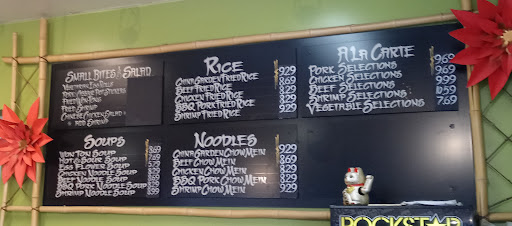 Small Bites & Salad
Vegetarian Egg Rolls
Pork & Veggie Pot Stickers
Fried Won Tons
Fried Shrimp
Chinese Chicken Salad
Add Shrimp
Soups
Won Ton Soup
Hot & Sour Soup 7.69
Egg Flower Soup
Chicken Noodle Soup
Beef Noodle Soup
BBQ Pork Noodle Soup
Shrimp Noodle Soup
Rice
China Garden Fried Rice 9.29
Beef Fried Rice 8.69
Chicken Fried Rice
BBQ Pork Fried Rice
Shrimp Fried Rice 9.29
Noodles
China Garden Chow Mein 9.29
Beef Chow Mein 8.69
Chicken Chow Mein
BBQ Pork Chow Mein
Shrimp Chow Mein 9.29
A La Carte
Pork Selections 9.69
Chicken Selections 9.69
Beef Selections 9.99
Shrimp Selections
Vegetable Selections 7.69
ROCKSTAR